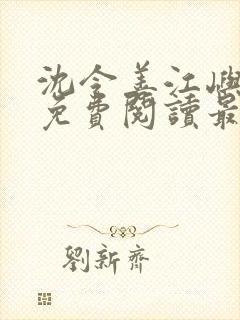 沈令姜江嶼
免費閱讀最
劉新齊